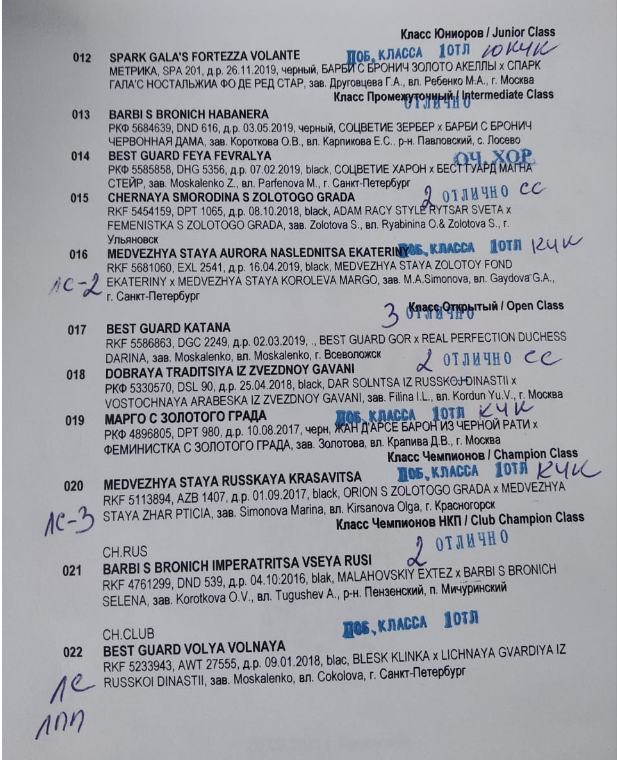 Класс Юниоров / Junior Class
012 SPARK GALA'S FORTEZZA VOLANTE ПОБ. КЛАССА 1ОТЛ ЮКЧК
МЕТРИКА, SPA 201, д.р. 26.11.2019, черный, БАРБИ С БРОНИЧ ЗОЛОТО АКЕЛЛЫ х СПАРК
ГАЛА'С НОСТАЛЬЖИА ФО ДЕ РЕД СТАР, зав. Друговцева Г.А., вл. Ребенко М.А., г. Москва
Класс Промежуточный / Intermediate Class
ОТЛИЧНО
013 BARBI S BRONICH HABANERA
РКФ 5684639, DND 616, д.р. 03.05.2019, черный, СОЦВЕТИЕ ЗЕРБЕР х БАРБИ С БРОНИЧ
ЧЕРВОННАЯ ДАМА, зав. Короткова О.В., вл. Карпикова Е.С., р-н. Павловский, с. Лосево
014 BEST GUARD FEYA FEVRALYA ОЧ. ХОР.
РКФ 5585858, DHG 5356, д.р. 07.02.2019, black, СОЦВЕТИЕ ХАРОН х БЕСТ ГУАРД МАГНА
СТЕЙР, зав. Moskalenko Z., вл. Parfenova M., г. Санкт-Петербург
015 CHERNAYA SMORODINA S ZOLOTOGO GRADA 2 ОТЛИЧНО СС
RKF 5454159, DPT 1065, д.р. 08.10.2018, black, ADAM RACY STYLE RYTSAR SVETA х
FEMENISTKA S ZOLOTOGO GRADA, зав. Zolotova S., вл. Ryabinina O.& Zolotova S., г.
Ульяновск
016 MEDVEZHYA STAYA AURORA NASLEDNITSA EKATERINY ПОБ. КЛАССА 1ОТЛ КЧК
RKF 5681060, EXL 2541, д.р. 16.04.2019, black, MEDVEZHYA STAYA ZOLOTOY FOND
ЛС-2 EKATERINY х MEDVEZHYA STAYA KOROLEVA MARGO, зав. M.A.Simonova, вл. Gaydova G.A.,
г. Санкт-Петербург
Класс Открытый / Open Class
3 ОТЛИЧНО
017 BEST GUARD KATANA
RKF 5586863, DGC 2249, д.р. 02.03.2019, ., BEST GUARD GOR х REAL PERFECTION DUCHESS
DARINA, зав. Moskalenko, вл. Moskalenko, г. Всеволожск
018 DOBRAYA TRADITSIYA IZ ZVEZDNOY GAVANI 2 ОТЛИЧНО СС
РКФ 5330570, DSL 90, д.р. 25.04.2018, black, DAR SOLNTSA IZ RUSSKOJ DINASTII х
VOSTOCHNAYA ARABESKA IZ ZVEZDNOY GAVANI, зав. Filina I.L., вл. Kordun Yu.V., г. Москва
019 МАРГО С ЗОЛОТОГО ГРАДА ПОБ. КЛАССА 1ОТЛ КЧК
РКФ 4896805, DPT 980, д.р. 10.08.2017, черн, ЖАН Д'АРСЕ БАРОН ИЗ ЧЕРНОЙ РАТИ х
ФЕМИНИСТКА С ЗОЛОТОГО ГРАДА, зав. Золотова, вл. Крапива Д.В., г. Москва
Класс Чемпионов / Champion Class
020 MEDVEZHYA STAYA RUSSKAYA KRASAVITSA ПОБ. КЛАССА 1ОТЛ КЧК
RKF 5113894, AZB 1407, д.р. 01.09.2017, black, ORION S ZOLOTOGO GRADA х MEDVEZHYA
ЛС-3 STAYA ZHAR PTICIA, зав. Simonova Marina, вл. Kirsanova Olga, г. Красногорск
Класс Чемпионов НКП / Club Champion Class
CH.RUS 2 ОТЛИЧНО
021 BARBI S BRONICH IMPERATRITSA VSEYA RUSI
RKF 4761299, DND 539, д.р. 04.10.2016, blak, MALAHOVSKIY EXTEZ х BARBI S BRONICH
SELENA, зав. Korotkova O.V., вл. Tugushev A., р-н. Пензенский, п. Мичуринский
CH.CLUB ПОБ. КЛАССА 1ОТЛ
022 BEST GUARD VOLYA VOLNAYA
RKF 5233943, AWT 27555, д.р. 09.01.2018, blac, BLESK KLINKA х LICHNAYA GVARDIYA IZ
ЛС RUSSKOI DINASTII, зав. Moskalenko, вл. Cokolova, г. Санкт-Петербург
ЛПП